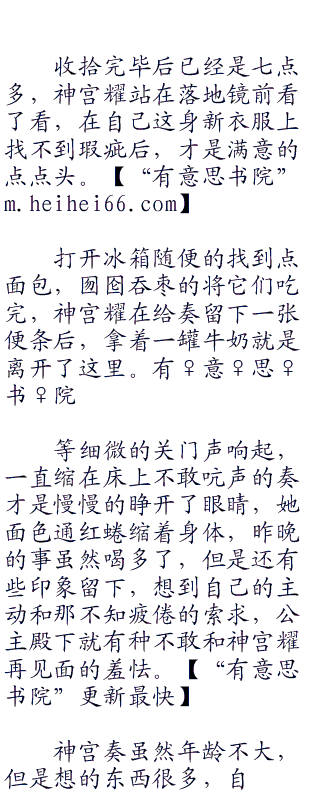 收拾完毕后已经是七点
多，神宫耀站在落地镜前看
了看，在自己这身新衣服上
找不到瑕疵后，才是满意的
点点头。【“有意思书院”
m.heihei66.com】
打开冰箱随便的找到点
面包，囫囵吞枣的将它们吃
完，神宫耀在给奏留下一张
便条后，拿着一罐牛奶就是
离开了这里。有♀意♀思♀
书♀院
等细微的关门声响起，
一直缩在床上不敢吭声的奏
才是慢慢的睁开了眼睛，她
面色通红蜷缩着身体，昨晚
的事虽然喝多了，但是还有
些印象留下，想到自己的主
动和那不知疲倦的索求，公
主殿下就有种不敢和神宫耀
再见面的羞怯。【“有意思
书院”更新最快】
神宫奏虽然年龄不大，
但是想的东西很多，自